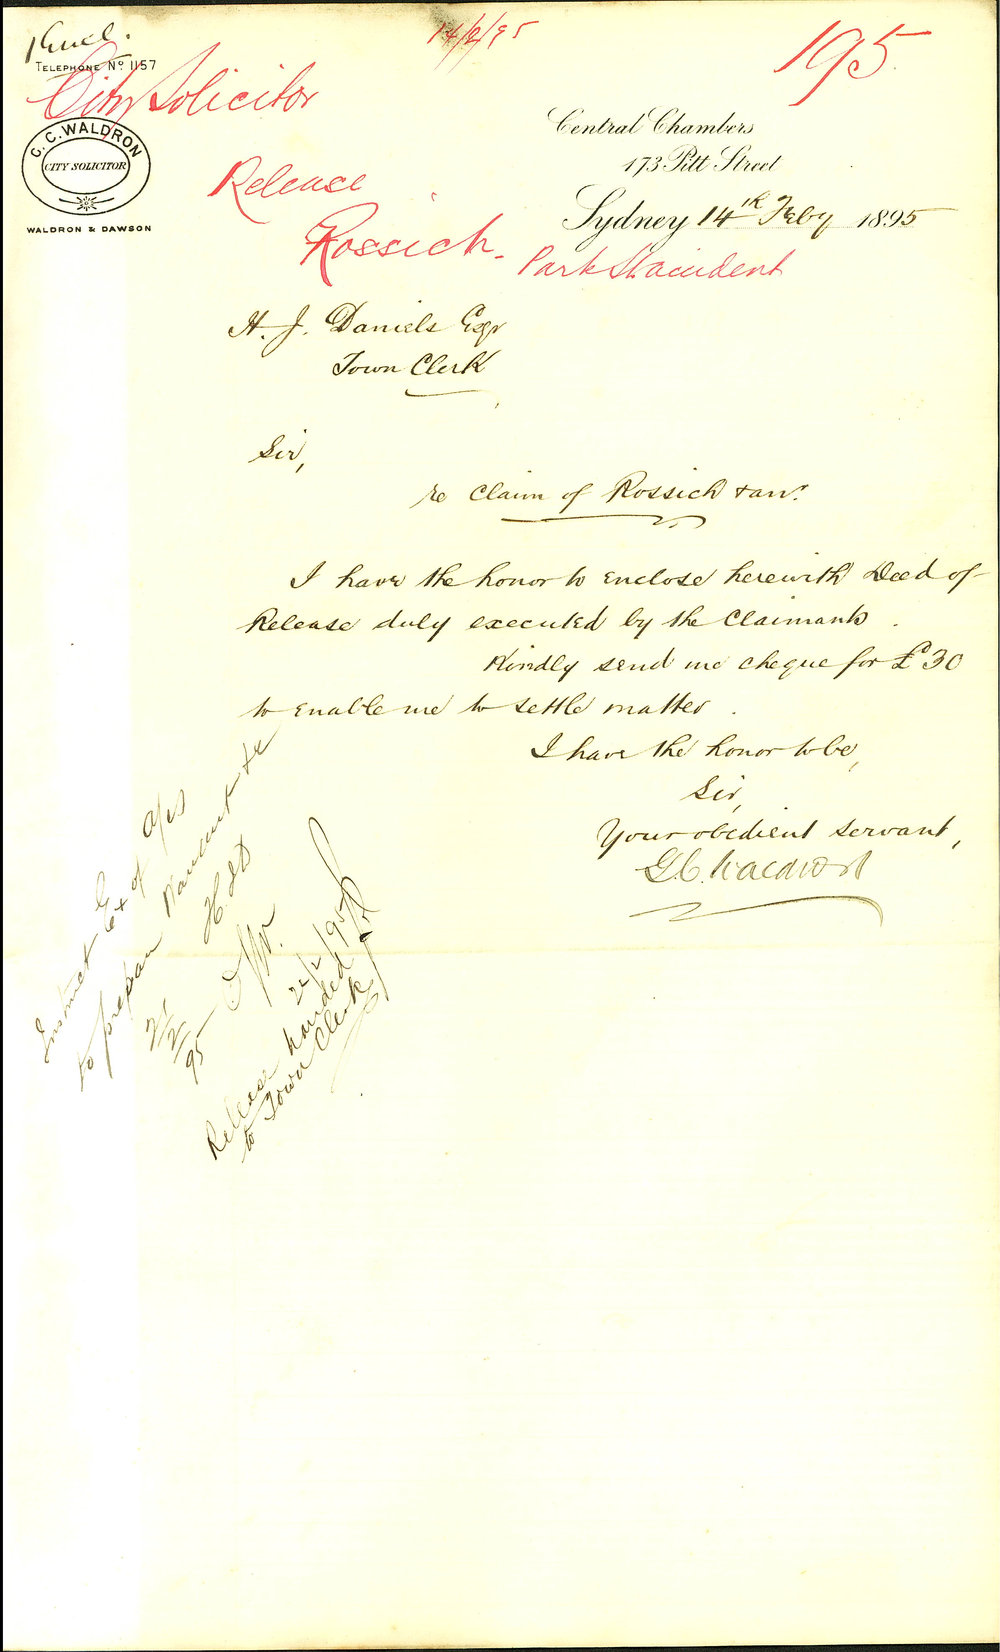 1 Encl.
14/2/95
195
TELEPHONE No 1157
City Solicitor
C. C. WALDRON
CITY SOLICITOR
WALDRON & DAWSON
Central Chambers
173 Pitt Street
Sydney 14th Feby 1895
Release
Rossich.
Park St accident
H. J. Daniels Esqr
Town Clerk
Sir,
re Claim of Rossich & anr.
I have the honor to enclose herewith Deed of
Release duly executed by the Claimants.
Kindly send me cheque for £30
to enable me to settle matter.
I have the honor to be,
Sir,
Your obedient servant,
Instruct Ex of a/cs
to prepare Warrant &c
H. J. D
95
Release handed
to Town Clerk